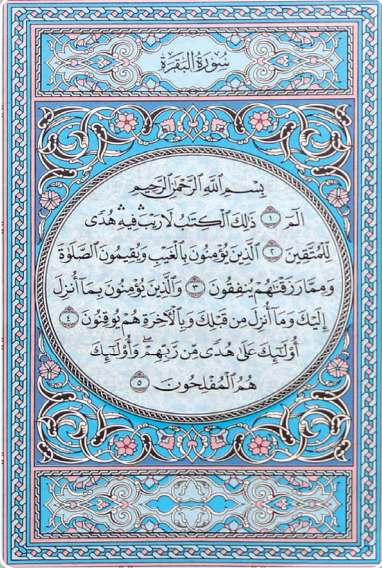 سُورَةُ الْبَقَرَةِ
بِسْمِ اللَّهِ الرَّحْمَٰنِ الرَّحِيمِ
الٓمٓ ١ ذَٰلِكَ الْكِتَٰبُ لَا رَيْبَ ۛ فِيهِ ۛ هُدًى
لِّلْمُتَّقِينَ ٢ الَّذِينَ يُؤْمِنُونَ بِالْغَيْبِ وَيُقِيمُونَ الصَّلَوٰةَ
وَمِمَّا رَزَقْنَٰهُمْ يُنفِقُونَ ٣ وَالَّذِينَ يُؤْمِنُونَ بِمَآ أُنزِلَ
إِلَيْكَ وَمَآ أُنزِلَ مِن قَبْلِكَ وَبِالْآخِرَةِ هُمْ يُوقِنُونَ ٤
أُو۟لَٰٓئِكَ عَلَىٰ هُدًى مِّن رَّبِّهِمْ ۖ وَأُو۟لَٰٓئِكَ
هُمُ الْمُفْلِحُونَ ٥